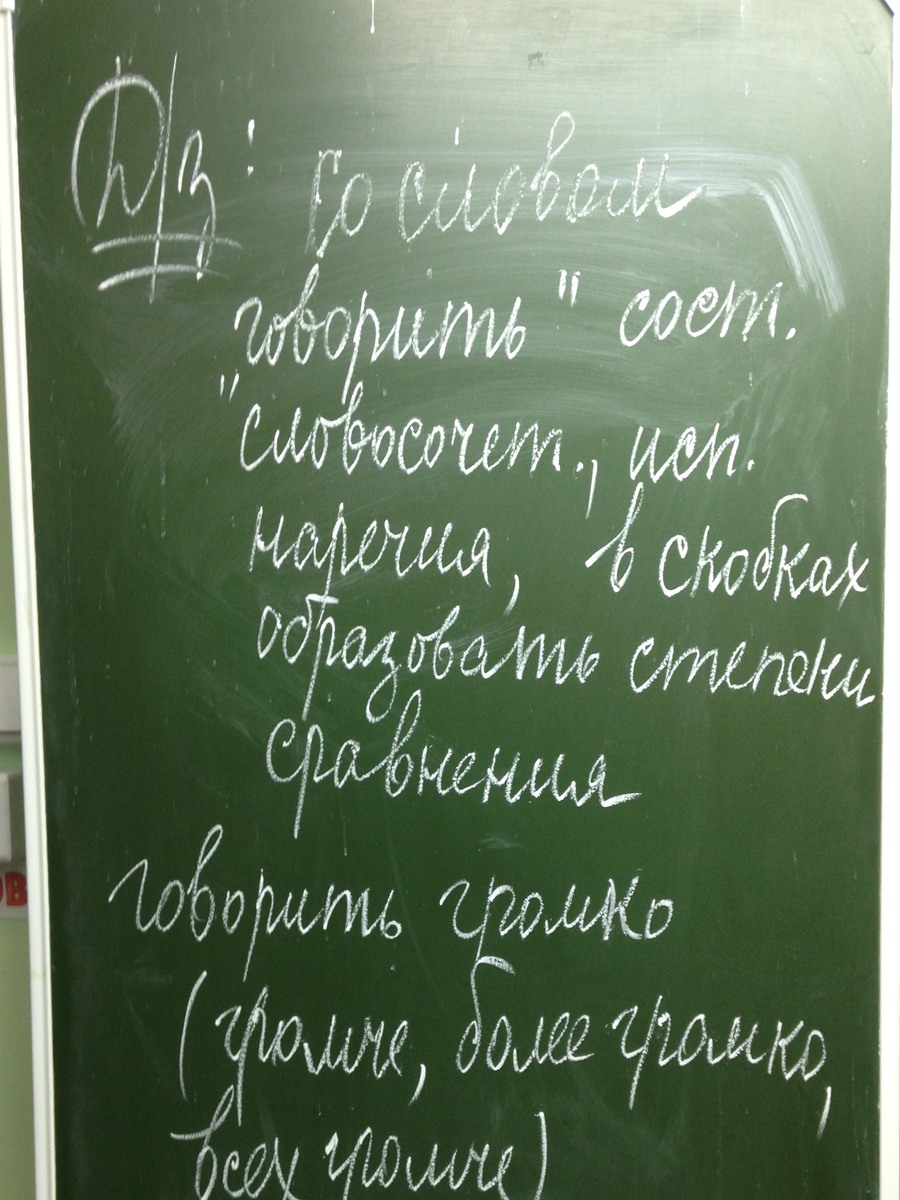 Д/з: Со словом
говорить" сост.
"словосочет., исп.
наречия, в скобках
образовать степени
сравнения
говорить громко
(громче, более громко,
всех громче)
ОВ